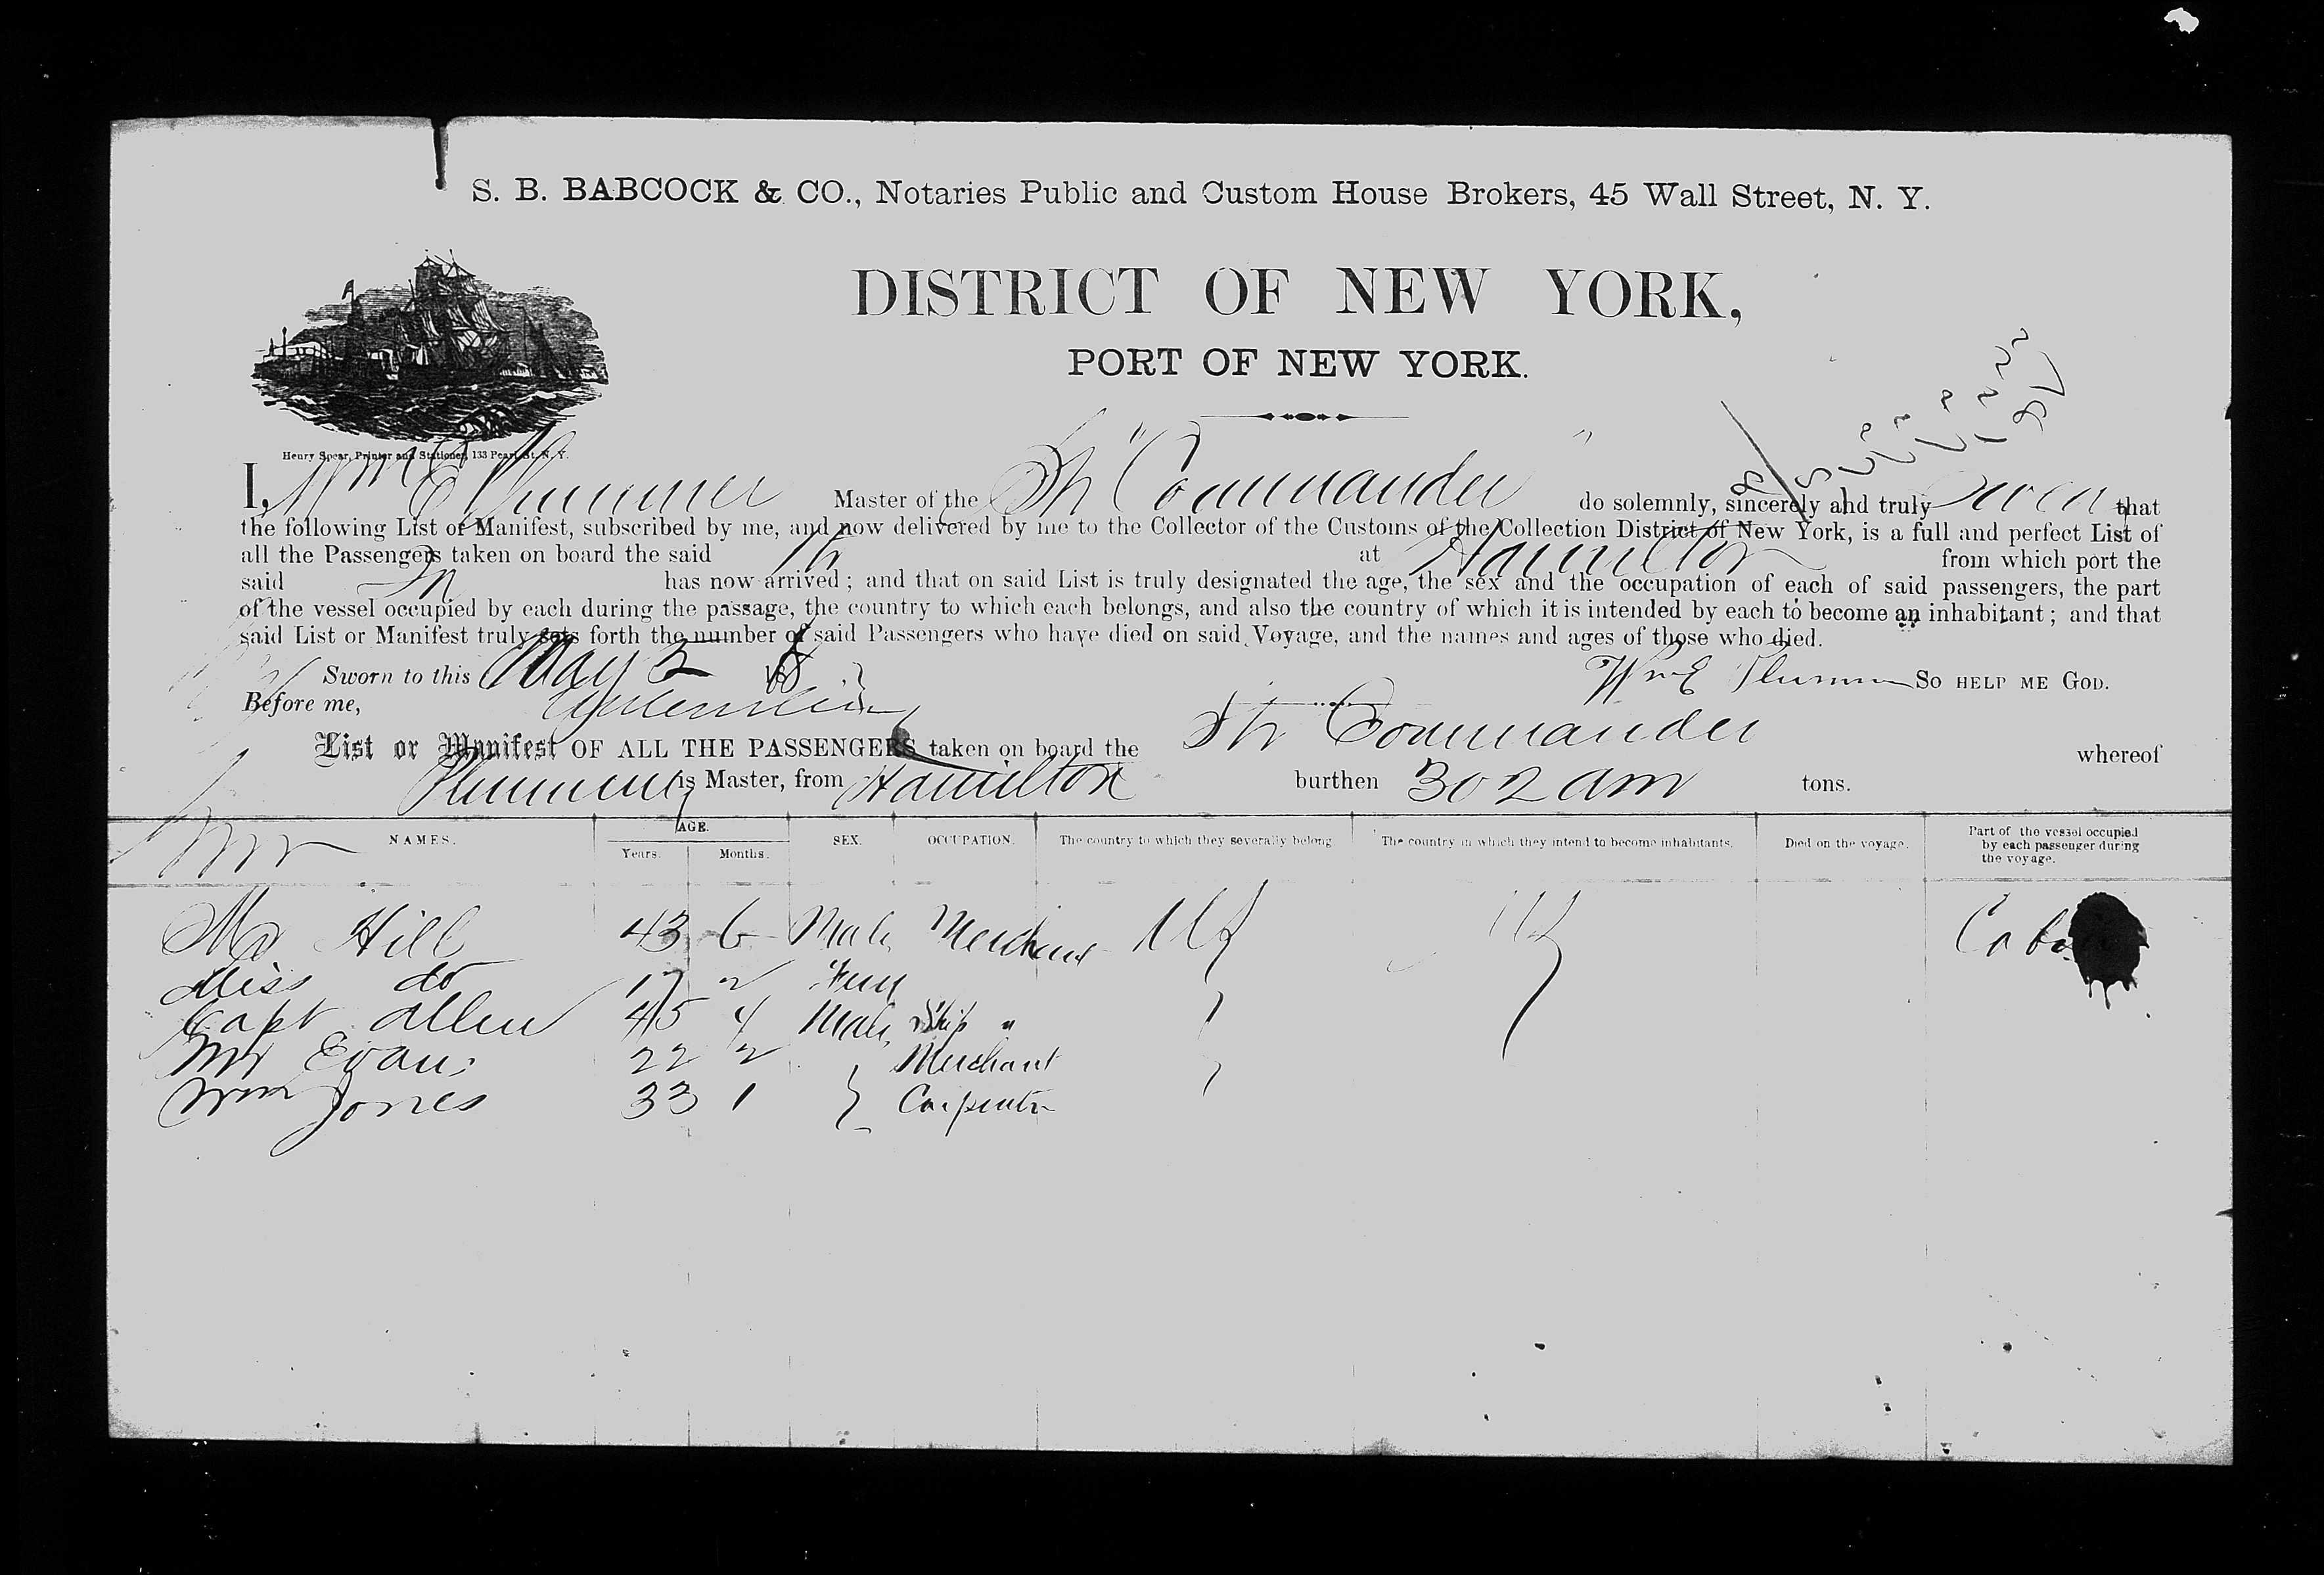 S. B. BABCOCK & CO., Notaries Public and Custom House Brokers, 45 Wall Street, N. Y.
DISTRICT OF NEW YORK,
PORT OF NEW YORK.
Henry Spear, Printer and Stationer, 133 Pearl St. N. Y.
I, Wm E Plummer Master of the Sh "Commander" do solemnly, sincerely and truly swear that
the following List or Manifest, subscribed by me, and now delivered by me to the Collector of the Customs of the Collection District of New York, is a full and perfect List of
all the Passengers taken on board the said Sh at Hamilton from which port the
said Sh has now arrived; and that on said List is truly designated the age, the sex and the occupation of each of said passengers, the part
of the vessel occupied by each during the passage, the country to which each belongs, and also the country of which it is intended by each to become an inhabitant; and that
said List or Manifest truly sets forth the number of said Passengers who have died on said Voyage, and the names and ages of those who died.
Sworn to this May 5 18 Wm E Plummer SO HELP ME GOD.
Before me,
List or Manifest OF ALL THE PASSENGERS taken on board the Sh Commander whereof
Plummer is Master, from Hamilton burthen 302 Am tons.
NAMES. AGE. Years. Months. SEX. OCCUPATION. The country to which they severally belong The country in which they intend to become inhabitants. Died on the voyage. Part of the vessel occupied by each passenger during the voyage.
Mr Hill 43 6 Male Merchant US US Cabin
Miss do 17 2 Fem
Capt Allen 45 4 Male Ship "
Mr Evans 22 2 Merchant
Wm Jones 33 1 Carpenter